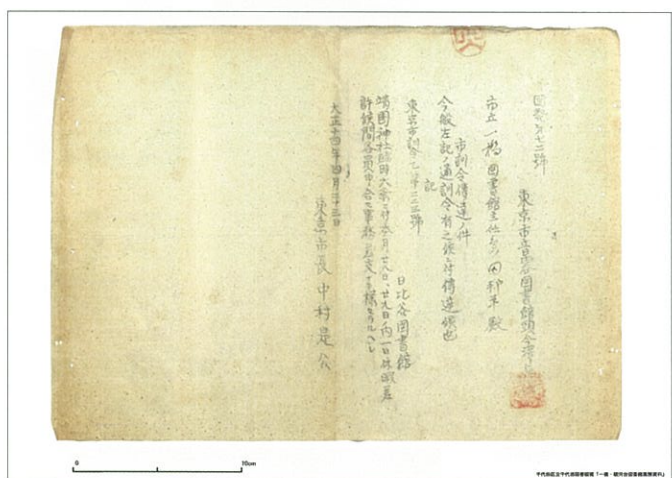 東京市日比谷図書館頭今澤
市立一橋図書館主任 田 殿
市訓令傳達ノ件
今般左記ノ通訓令有之候ニ付傳達候也
記
東京市訓令乙第 號
日比谷図書館
靖国神社臨時大祭ニ付本月廿八日、廿九日ノ内一日休暇差
許候間各員申合セ事務ニ差支ナキ様
大正十四年四月二十三日
東京市長 中村是公
0
10cm
千代田区立千代田図書館蔵「一橋・駿河台図書館業務資料」